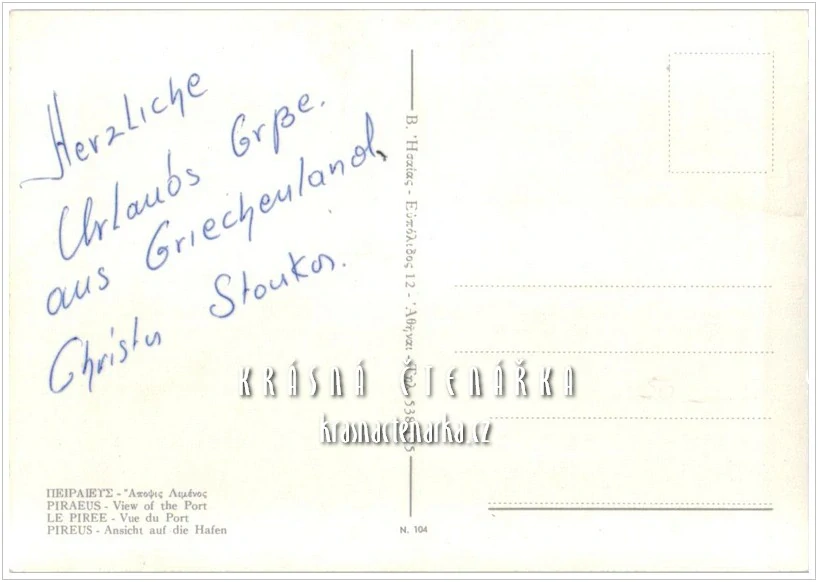 Herzliche
Urlaubs Grße.
aus Griechenland.
Christos Stoukos.
ΠΕΙΡΑΙΕΥΣ - Ἄποψις Λιμένος
PIRAEUS - View of the Port
LE PIREE - Vue du Port
PIREUS - Ansicht auf die Hafen
Β. Ἡσαΐας - Εὐπόλιδος 12 - Ἀθῆναι - Τηλ.
N. 104
KRÁSNÁ ČTENÁŘKA
krasnactenarka.cz